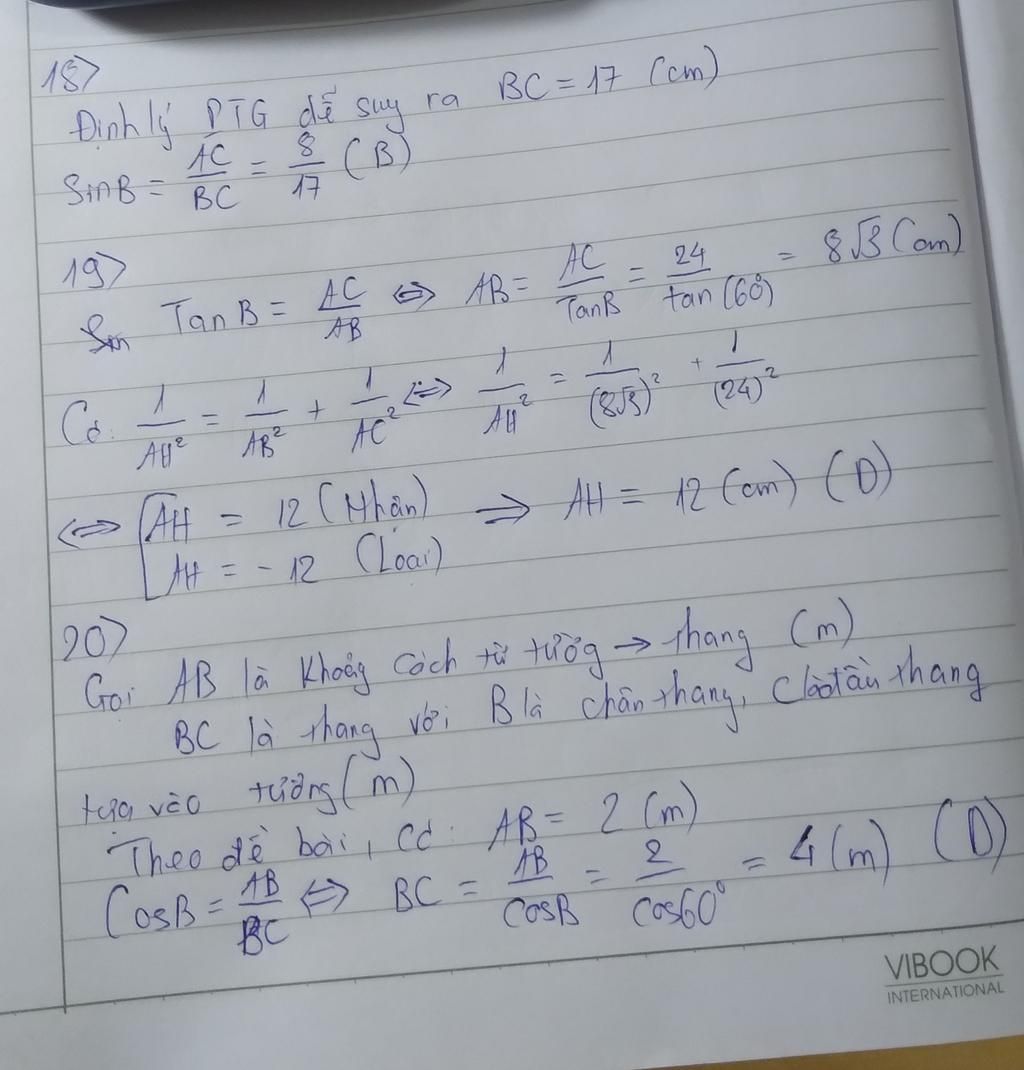 18>
Định lý PTG dễ suy ra BC = 17 (cm)
SinB = AC/BC = 8/17 (B)
19>
Sin TanB = AC/AB ⇔ AB = AC/TanB = 24/tan(60°) = 8√3 (cm)
Có: 1/AH² = 1/AB² + 1/AC² ⇔ 1/AH² = 1/(8√3)² + 1/(24)²
⇔ [AH = 12 (Nhận) ⇒ AH = 12 (cm) (D)
AH = -12 (Loại)
20>
Gọi AB là khoảng cách từ tường → thang (m)
BC là thang với B là chân thang, C là đầu thang
tựa vào tường (m)
Theo đề bài, có: AB = 2 (m)
CosB = AB/BC ⇔ BC = AB/CosB = 2/Cos60° = 4 (m) (D)
VIBOOK
INTERNATIONAL